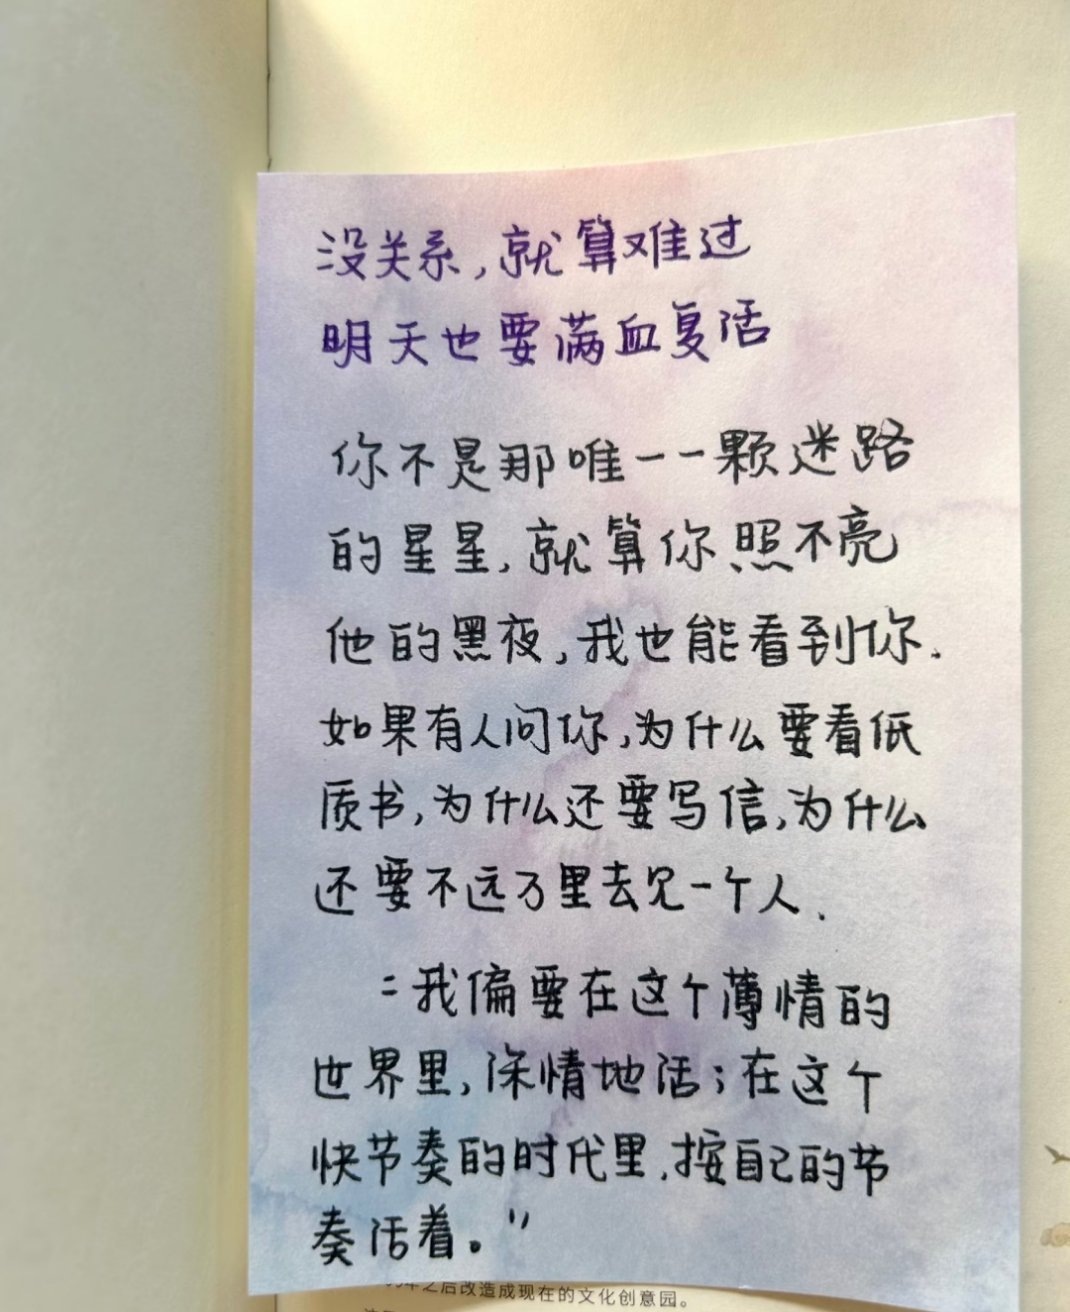 没关系,就算难过
明天也要满血复活
你不是那唯一一颗迷路
的星星,就算你照不亮
他的黑夜,我也能看到你.
如果有人问你,为什么要看低
质书,为什么还要写信,为什么
还要不远万里去见一个人.
:我偏要在这个薄情的
世界里,深情地活;在这个
快节奏的时代里,按自己的节
奏活着。"
年之后改造成现在的文化创意园。